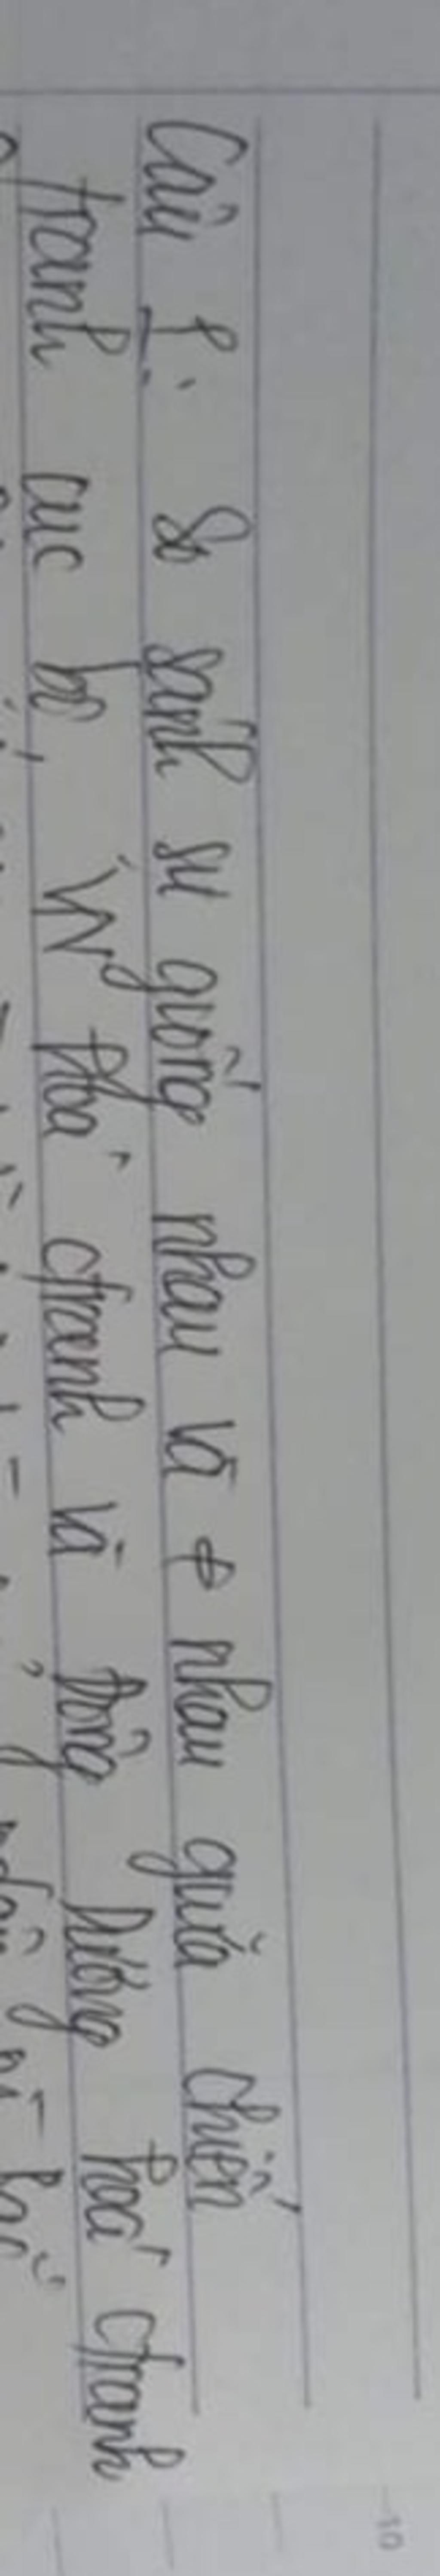 Câu 1: So sánh sự giống nhau và ≠ nhau giữa chiến
tranh cục bộ, VN hoá ctranh và Đông Dương hoá ctranh
10